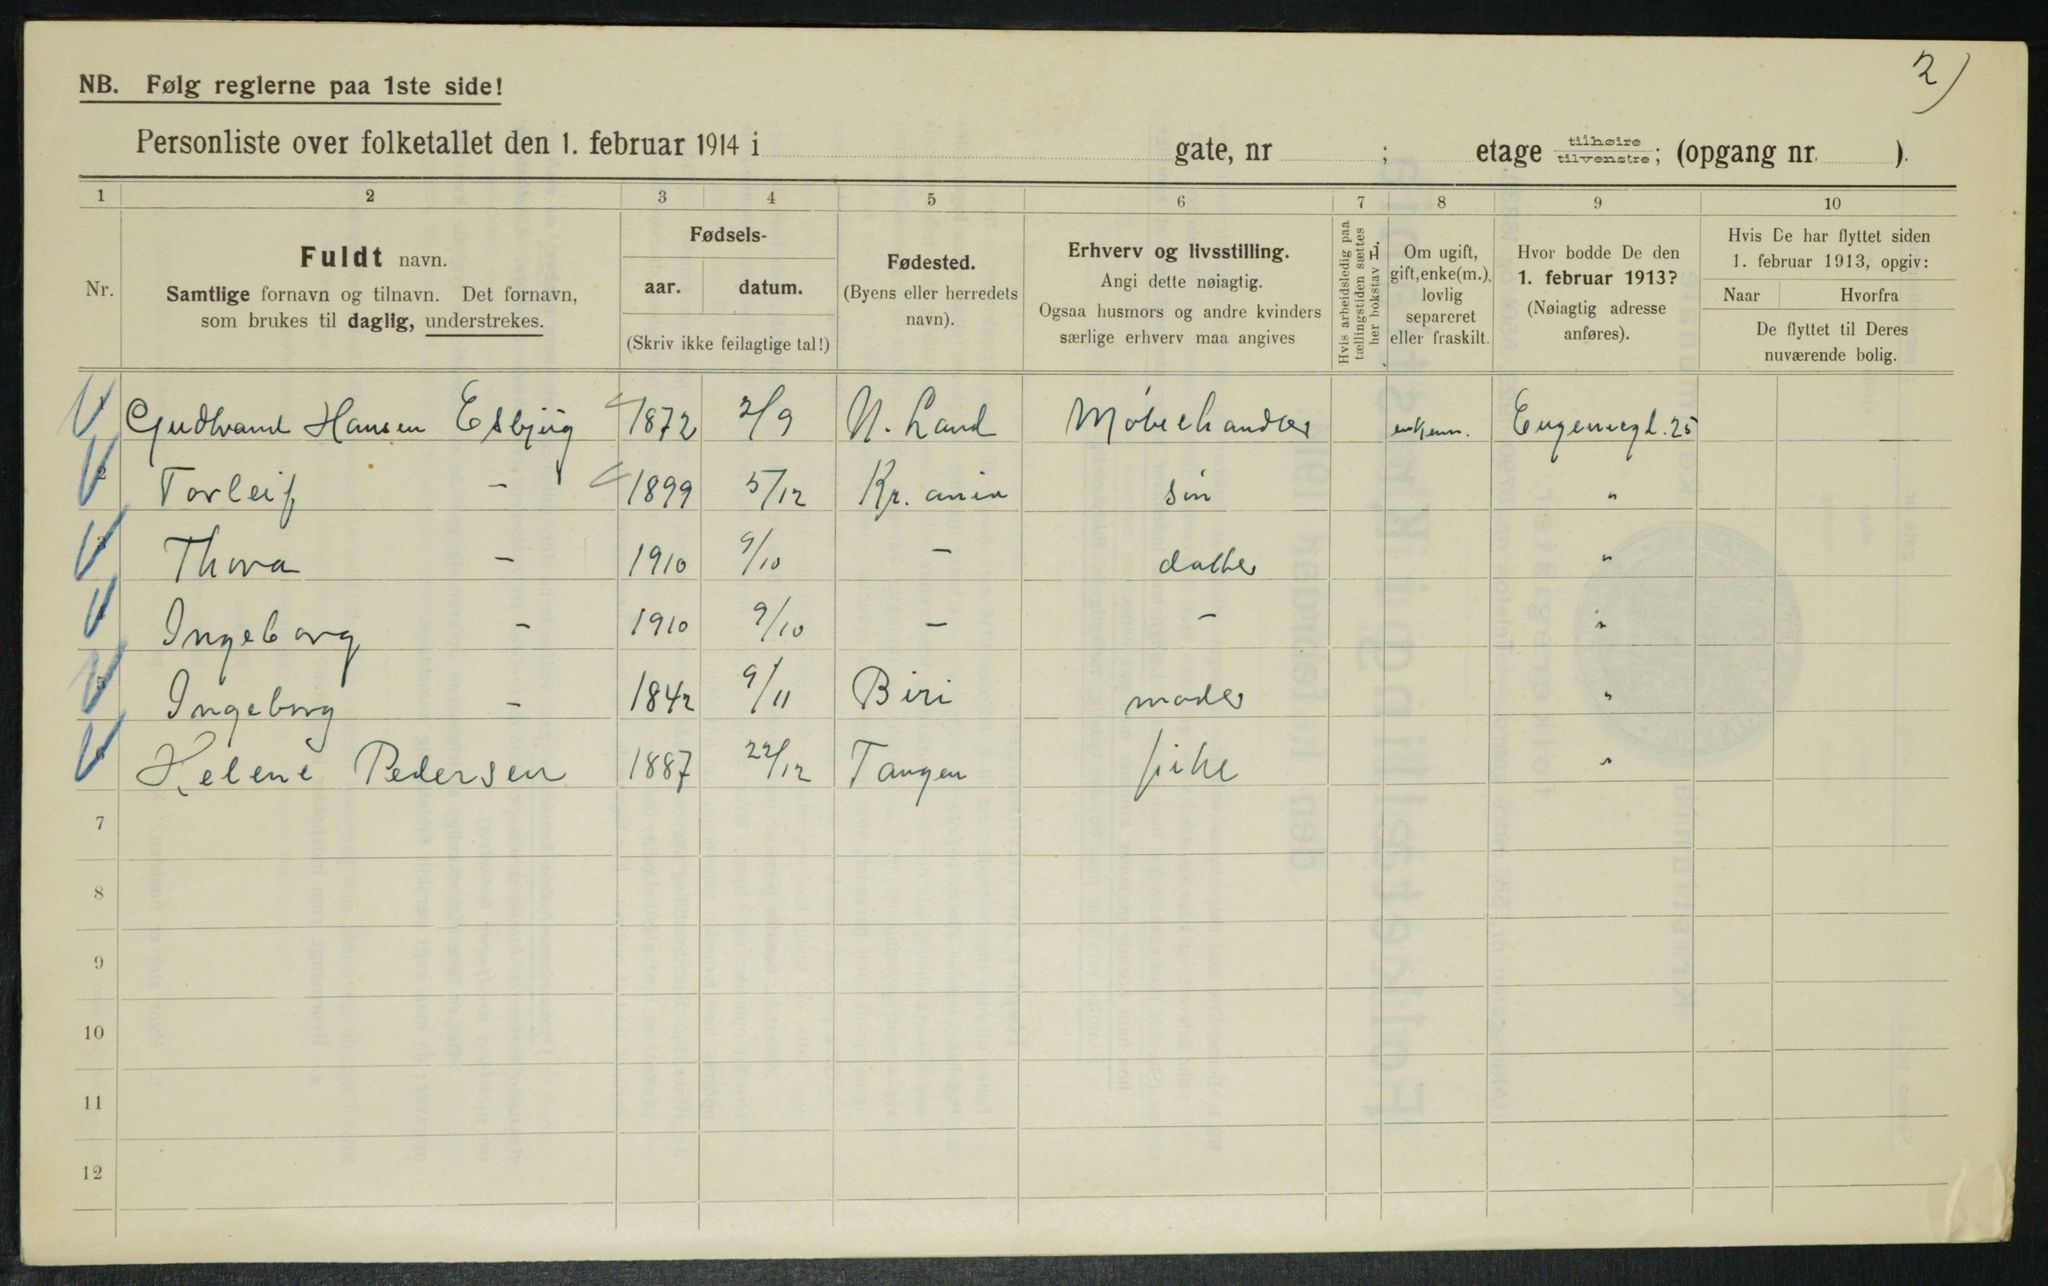 2)
NB. Følg reglerne paa 1ste side!
Personliste over folketallet den 1. februar 1914 i gate, nr ; etage tilhøire tilvenstre; (opgang nr. ).
1 2 3 4 5 6 7 8 9 10
Nr.
Fuldt navn.
Samtlige fornavn og tilnavn. Det fornavn,
som brukes til daglig, understrekes.
Fødsels-
aar. datum.
(Skriv ikke feilagtige tal!)
Fødested.
(Byens eller herredets
navn).
Erhverv og livsstilling.
Angi dette nøiagtig.
Ogsaa husmors og andre kvinders
særlige erhverv maa angives
Hvis arbeidsledig paa
tællingstiden sættes
her bokstav L.
Om ugift,
gift, enke(m.),
lovlig
separeret
eller fraskilt.
Hvor bodde De den
1. februar 1913?
(Nøiagtig adresse
anføres).
Hvis De har flyttet siden
1. februar 1913, opgiv:
Naar Hvorfra
De flyttet til Deres
nuværende bolig.
1 Gudbrand Hansen Esbjug 1872 2/9 N. Land Møbelhandler enkem. Eugeniegt. 25
2 Torleif - 1899 5/12 Kr.ania søn "
3 Thora - 1910 9/10 - datter "
4 Ingeborg - 1910 9/10 - - "
5 Ingeborg - 1842 9/11 Biri moder "
6 Helene Pedersen 1887 22/12 Tangen pike "
7
8
9
10
11
12